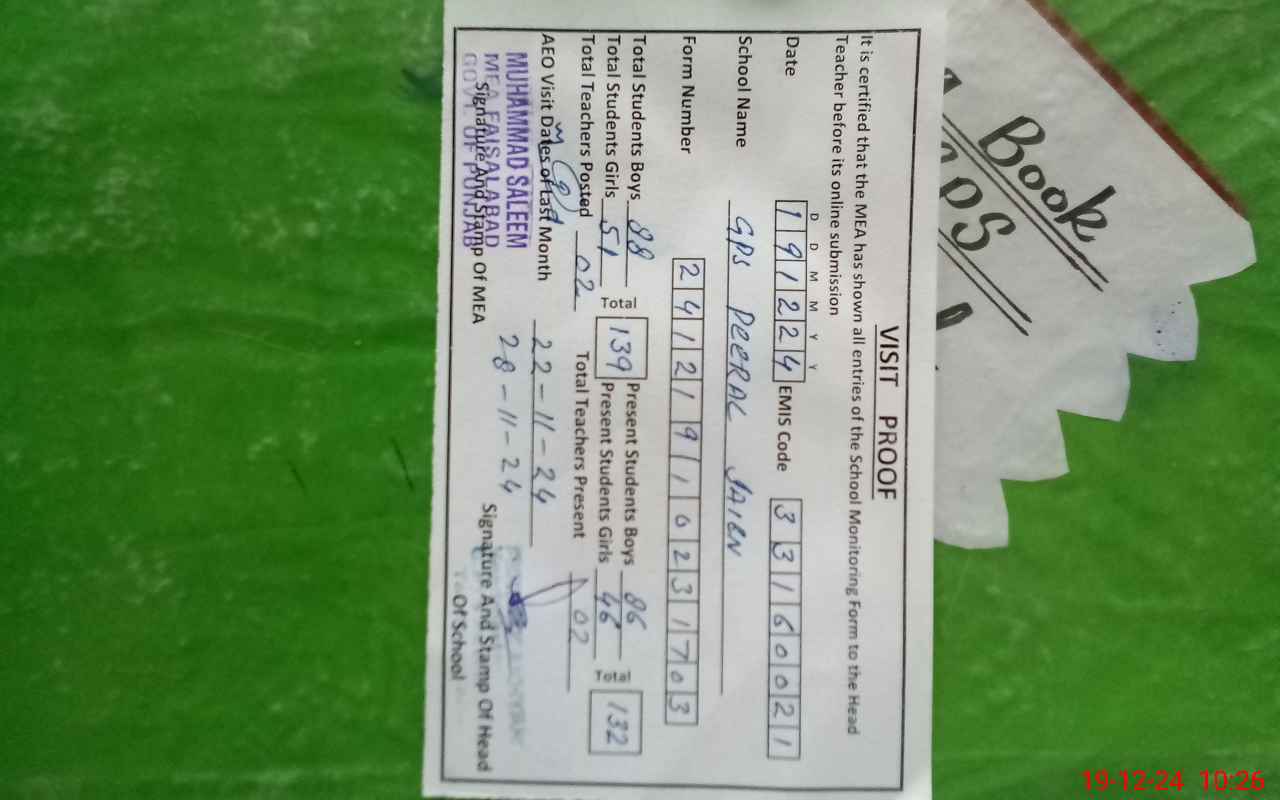 VISIT PROOF
It is certified that the MEA has shown all entries of the School Monitoring Form to the Head
Teacher before its online submission
D D M M Y Y
Date 191224 EMIS Code 33160021
School Name GPS PEERAL JAIEN
Form Number 241219110231703
Total Students Boys 88 Total 139 Present Students Boys 86 Total 132
Total Students Girls 51 Present Students Girls 46
Total Teachers Posted 02 Total Teachers Present 02
AEO Visit Dates of Last Month 22-11-24
28-11-24
MUHAMMAD SALEEM
MEA FAISALABAD
GOVT. OF PUNJAB
Signature And Stamp Of MEA
Signature And Stamp Of Head
Of School
Book
GPS
19-12-24 10:26